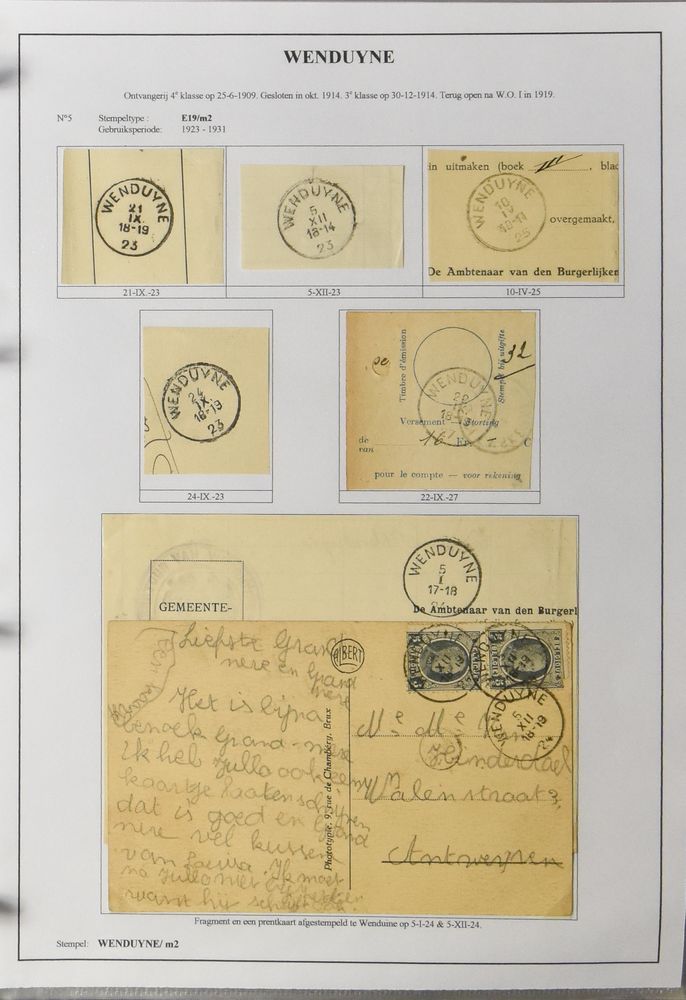 WENDUYNE
Ontvangerij 4e klasse op 25-6-1909. Gesloten in okt. 1914. 3e klasse op 30-12-1914. Terug open na W.O. I in 1919.
N°5 Stempeltype : E19/m2
Gebruiksperiode: 1923 - 1931
WENDUYNE
21
IX.
18-19
23
WENDUYNE
5
XII
18-14
23
in uitmaken (boek , blad
WENDUYNE
10
IV
25
overgemaakt,
De Ambtenaar van den Burgerlijken
21-IX.-23
5-XII-23
10-IV-25
WENDUYNE
24
IX.
18-19
23
Timbre d'émission
Stempel bij uitgifte
32
WENDUYNE
Versement — Storting
de
van
16 Fr. -
pour le compte — voor rekening
24-IX.-23
22-IX.-27
WENDUYNE
5
I
17-18
GEMEENTE-
De Ambtenaar van den Burgerl
Liefste Grand
mere en Grand
pere
Het is bijna
Grand-mere
Ik heb Jullo ook een
kaartje laaten schrijven
dat is goed en Grand
mere vel kussen
van Ik moet
no Jullo niet
want hij
ALBERT
Phototypie, 9, rue de Chambéry, Brux
WENDUYNE
WENDUYNE
WENDUYNE
5
XII
18-19
24
Me Me
Antwerpen
Fragment en een prentkaart afgestempeld te Wenduine op 5-I-24 & 5-XII-24.
Stempel: WENDUYNE/ m2